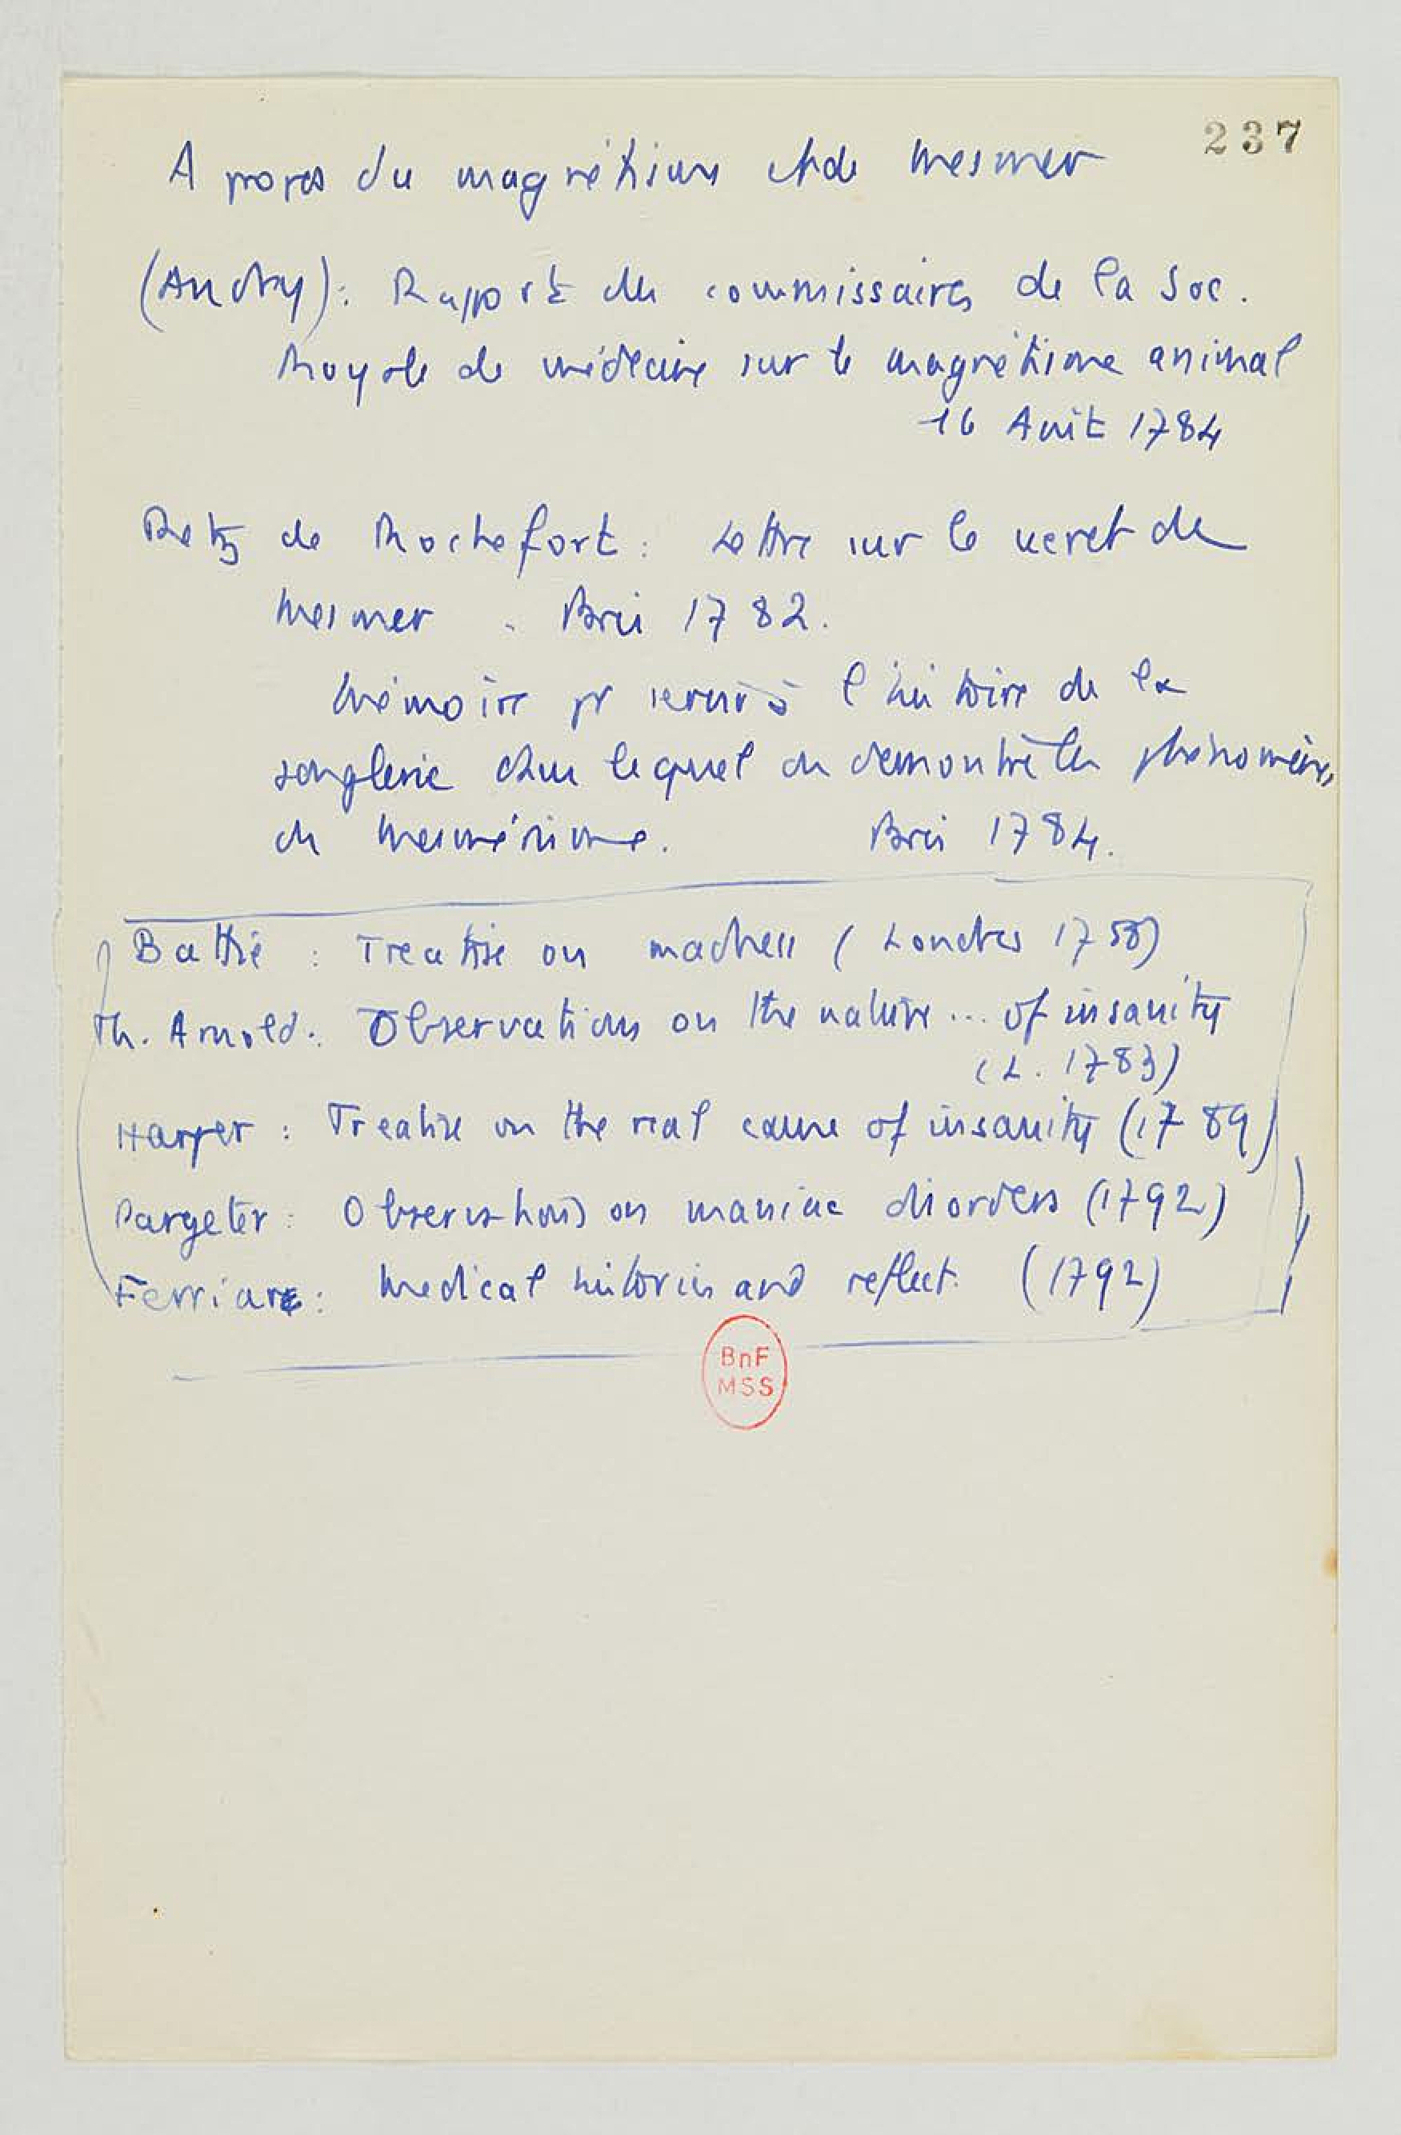 237
A propos du magnétisme et de Mesmer
(Andry): Rapport des commissaires de la Soc.
Royale de médecine sur le magnétisme animal
16 Août 1784
Retz de Rochefort : Lettre sur le secret de
Mesmer . Paris 1782.
Mémoire pr servir à l'histoire de la
jonglerie dans lequel on démontre les phénomènes
du mesmérisme. Paris 1784.
Battie : Treatise on madness (Londres 1758)
Th. Arnold : Observations on the nature ... of insanity
(L. 1783)
Harper : Treatise on the real cause of insanity (1789)
Pargeter : Observations on maniac disorders (1792)
Ferriare : Medical histories and reflect. (1792)
BnF
MSS